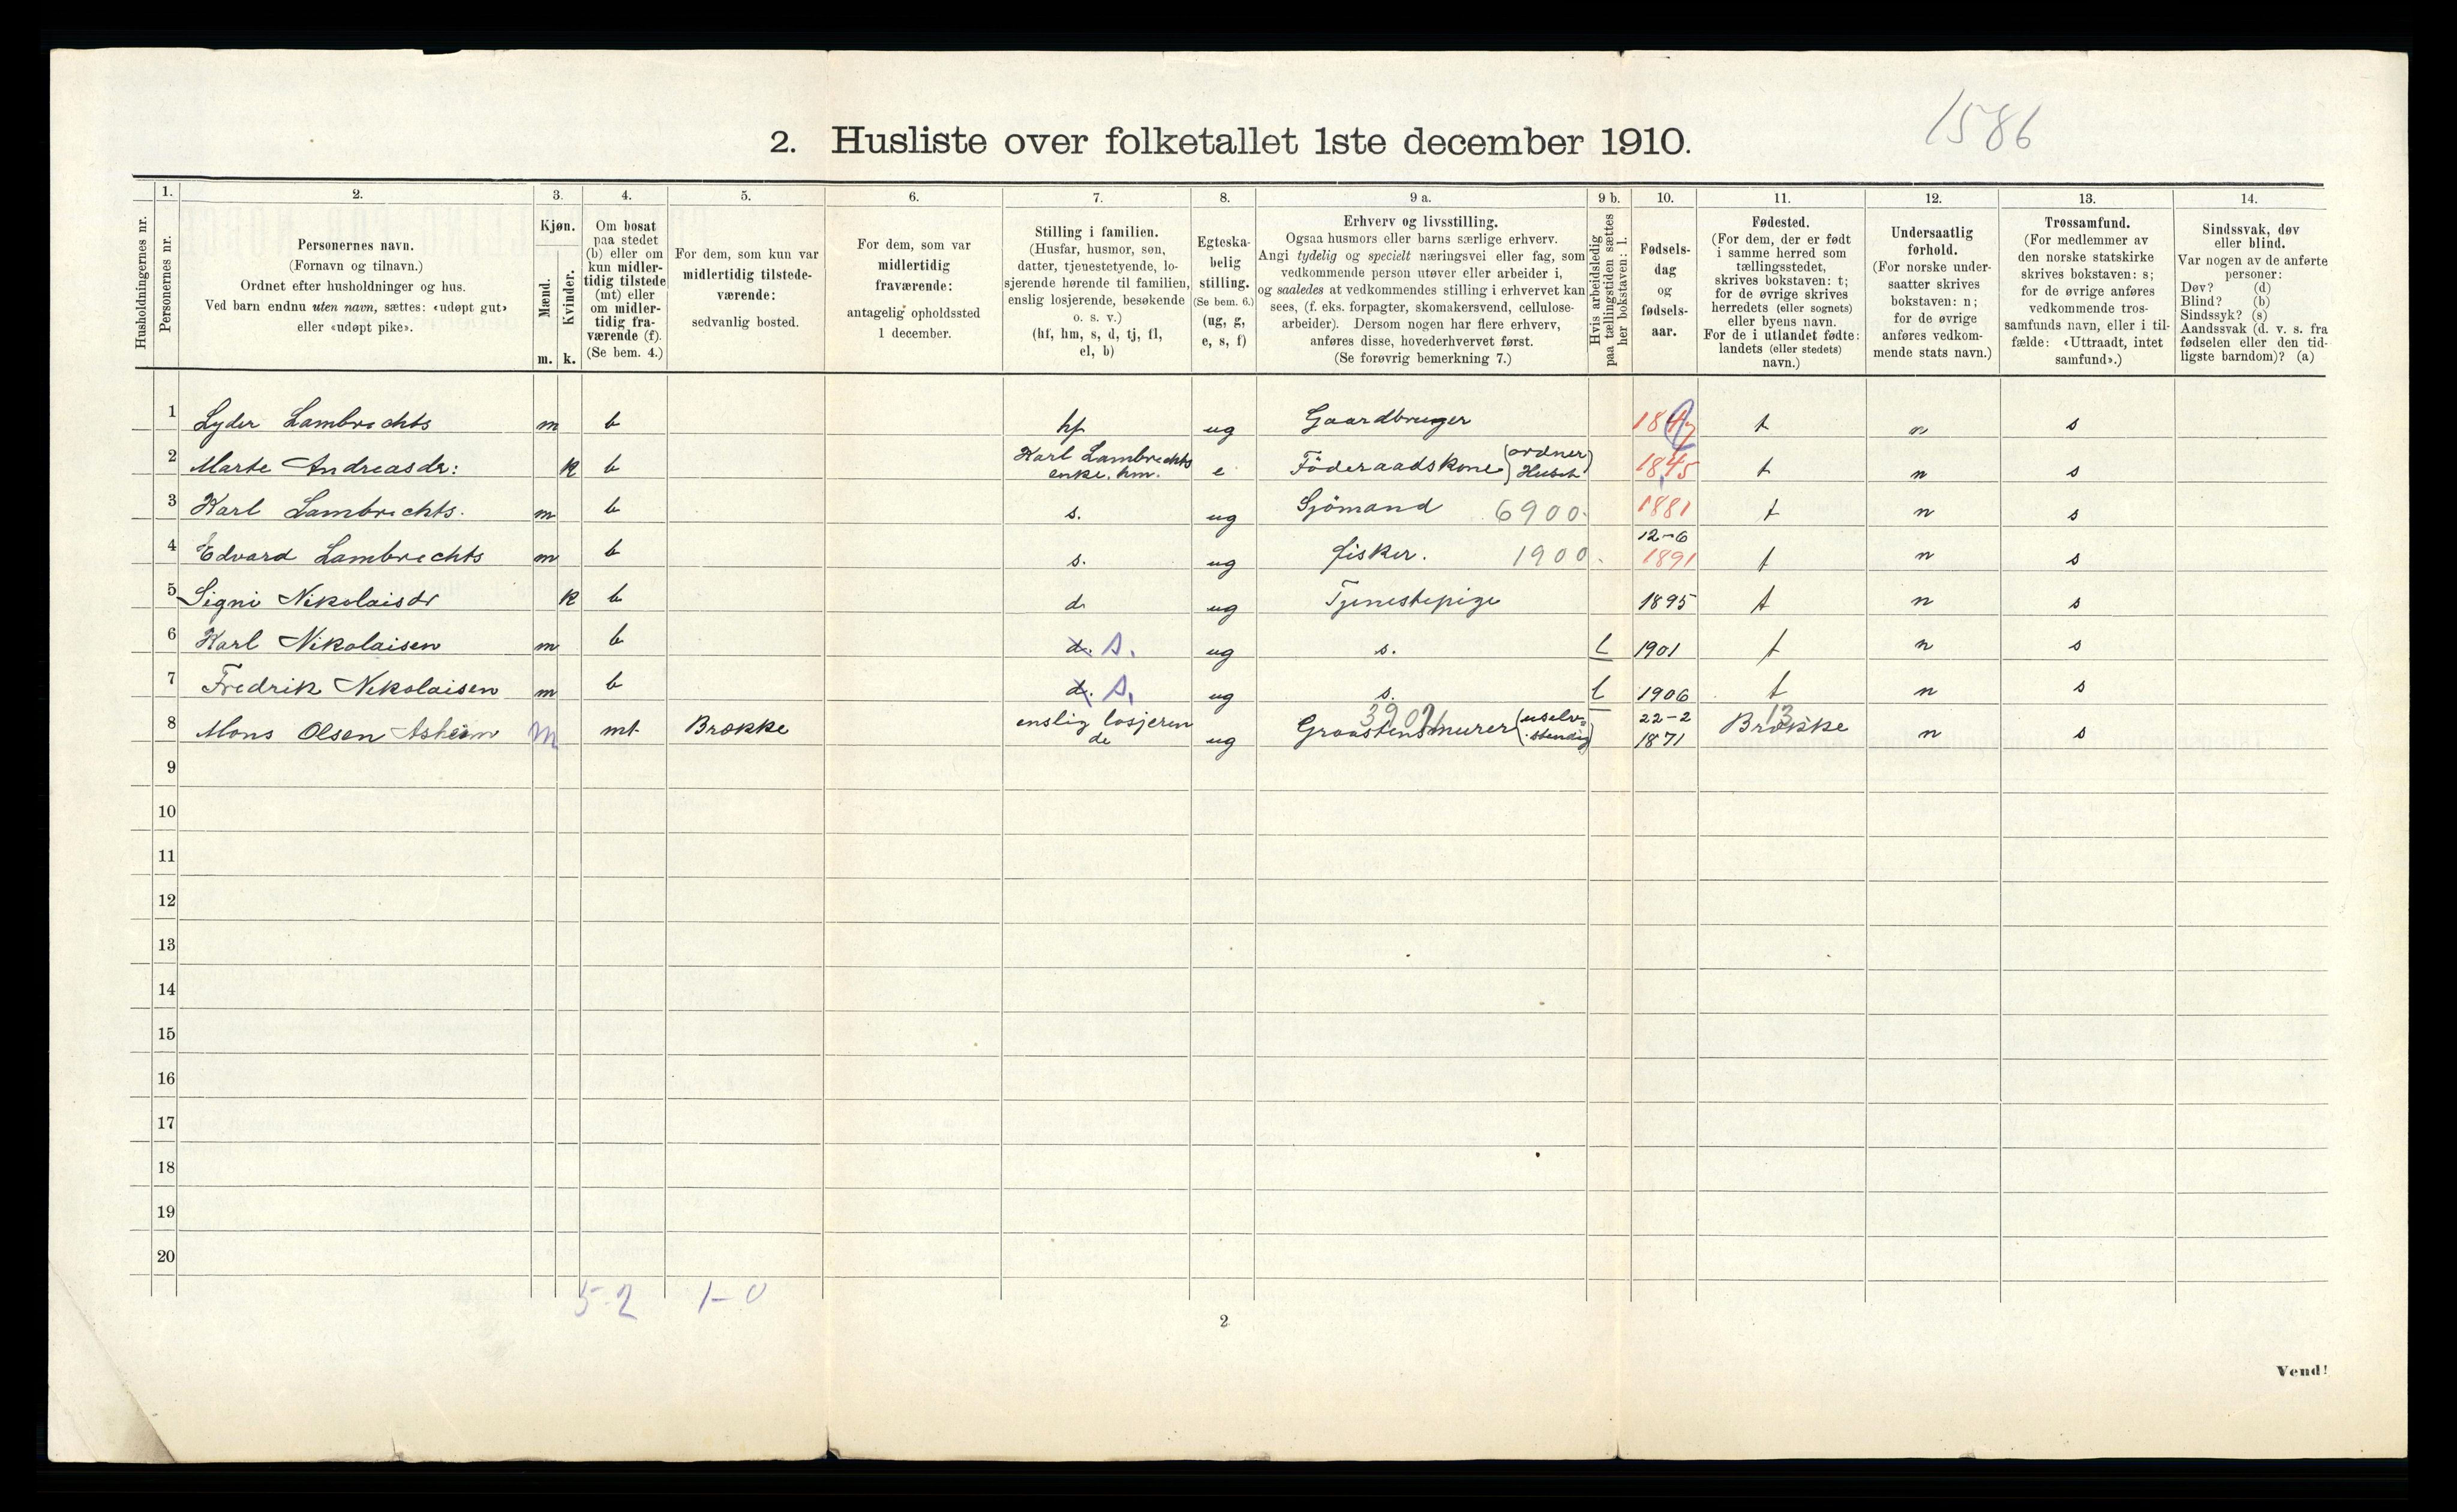 1586
2. Husliste over folketallet 1ste december 1910.
Husholdningernes nr.
1.
Personernes nr.
2.
Personernes navn.
(Fornavn og tilnavn.)
Ordnet efter husholdninger og hus.
Ved barn endnu uten navn, sættes: «udøpt gut»
eller «udøpt pike».
3.
Kjøn.
Mænd.
Kvinder.
m. k.
4.
Om bosat
paa stedet
(b) eller om
kun midler-
tidig tilstede
(mt) eller
om midler-
tidig fra-
værende (f).
(Se bem. 4.)
5.
For dem, som kun var
midlertidig tilstede-
værende:
sedvanlig bosted.
6.
For dem, som var
midlertidig
fraværende:
antagelig opholdssted
1 december.
7.
Stilling i familien.
(Husfar, husmor, søn,
datter, tjenestetyende, lo-
sjerende hørende til familien,
enslig losjerende, besøkende
o. s. v.)
(hf, hm, s, d, tj, fl,
el, b)
8.
Egteska-
belig
stilling.
(Se bem. 6.)
(ug, g,
e, s, f)
9 a.
Erhverv og livsstilling.
Ogsaa husmors eller barns særlige erhverv.
Angi tydelig og specielt næringsvei eller fag, som
vedkommende person utøver eller arbeider i,
og saaledes at vedkommendes stilling i erhvervet kan
sees, (f. eks. forpagter, skomakersvend, cellulose-
arbeider). Dersom nogen har flere erhverv,
anføres disse, hovederhvervet først.
(Se forøvrig bemerkning 7.)
9 b.
Hvis arbeidsledig
paa tællingstiden sættes
her bokstaven: l.
10.
Fødsels-
dag
og
fødsels-
aar.
11.
Fødested.
(For dem, der er født
i samme herred som
tællingsstedet,
skrives bokstaven: t;
for de øvrige skrives
herredets (eller sognets)
eller byens navn.
For de i utlandet fødte:
landets (eller stedets)
navn.)
12.
Undersaatlig
forhold.
(For norske under-
saatter skrives
bokstaven: n;
for de øvrige
anføres vedkom-
mende stats navn.)
13.
Trossamfund.
(For medlemmer av
den norske statskirke
skrives bokstaven: s;
for de øvrige anføres
vedkommende tros-
samfunds navn, eller i til-
fælde: «Uttraadt, intet
samfund».)
14.
Sindssvak, døv
eller blind.
Var nogen av de anførte
personer:
Døv? (d)
Blind? (b)
Sindssyk? (s)
Aandssvak (d. v. s. fra
fødselen eller den tid-
ligste barndom)? (a)
1 Lyder Lambrechts m b hf ug Gaardbruger t n s
2 Marte Andreasdr: k b Karl Lambrechts enke. hm. e Föderaadskone (ordner Huset) 1845 t n s
3 Karl Lambrechts. m b s. ug Sjömand 6900. 1881 t n s
4 Edvard Lambrechts m b s. ug fisker. 1900. 12-6 1891 t n s
5 Signi Nikolaisdr k b d. ug Tjenestepige 1895 t n s
6 Karl Nikolaisen m b d. s. ug s. l 1901 t n s
7 Fredrik Nikolaisen m b d. s. ug s. l 1906 t n s
8 Mons Olsen Asheim m mt Brække enslig losjeren de ug Graastensmurer (uselv- stendig) 22-2 1871 13 Brække n s
9
10
11
12
13
14
15
16
17
18
19
20
5-2 1-0
2
Vend!